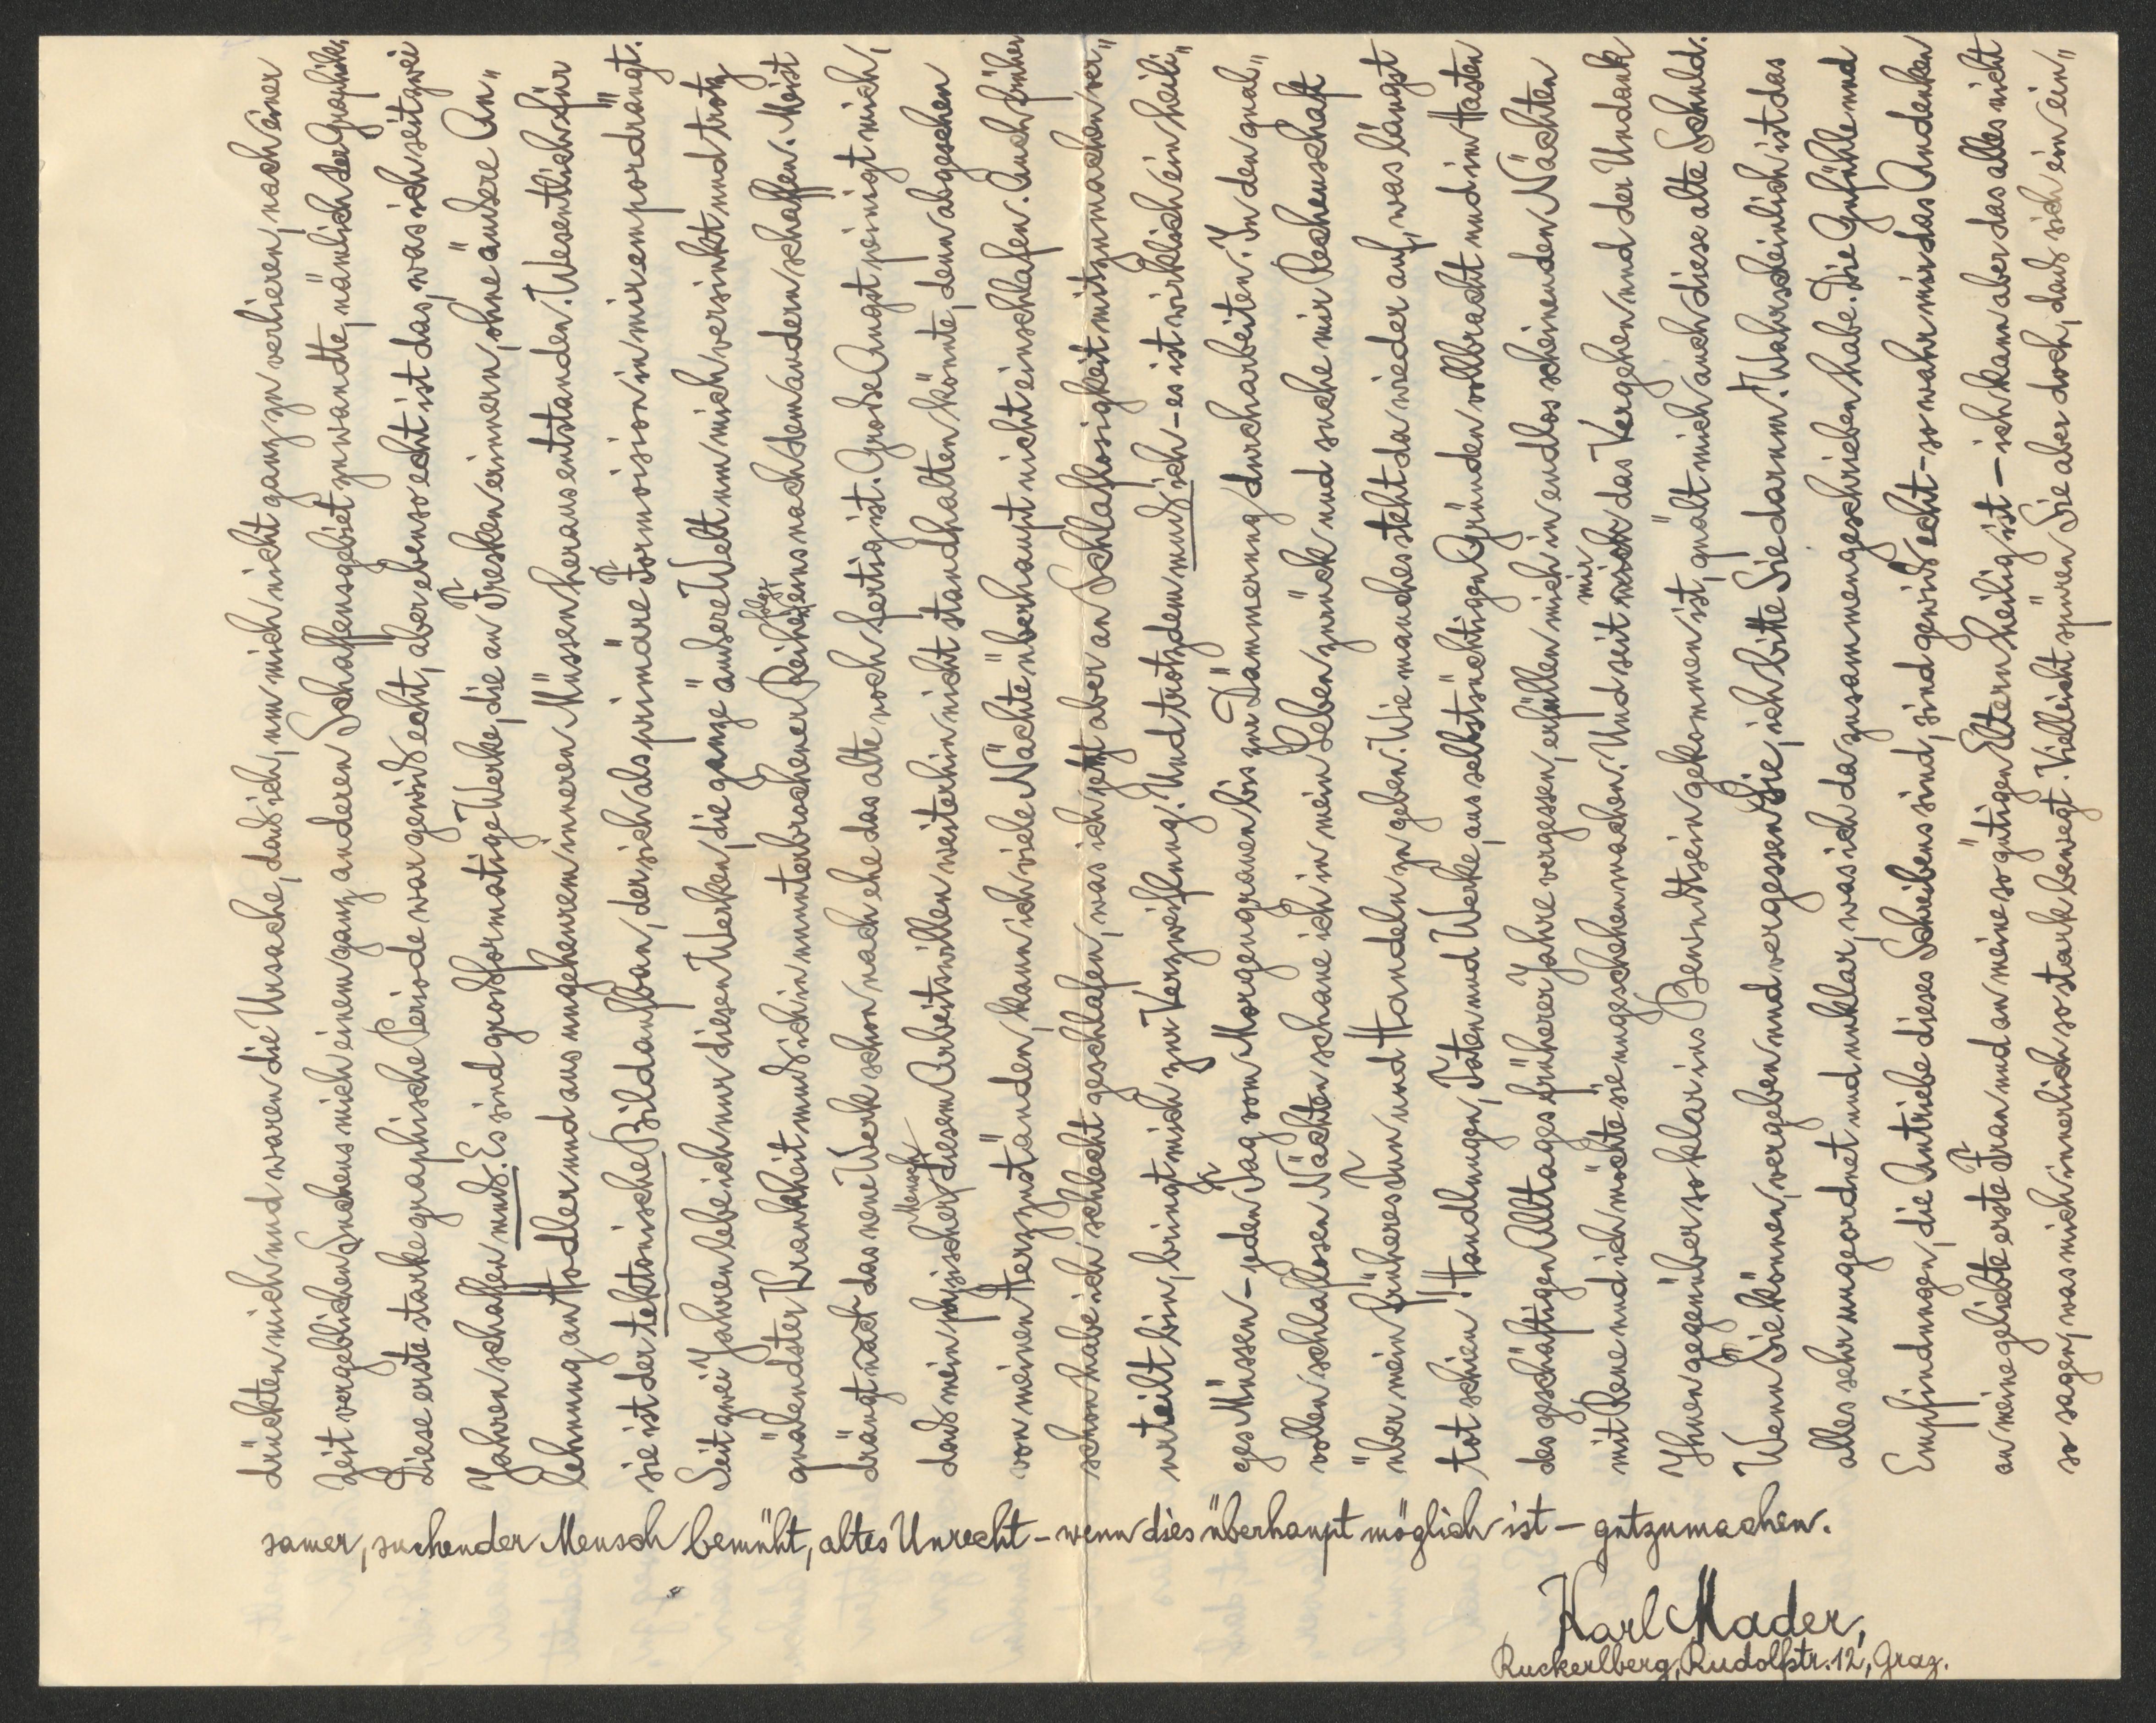 drückten mich und waren die Ursache, daß ich, um mich nicht ganz zu verlieren, nach einer
Zeit vergeblichen Suchens mich einem ganz anderen Schaffensgebiet zuwandte, nämlich der Graphik.
Diese erste starke graphische Periode war gewiß echt, aber ebenso echt ist das, was ich seit zwei
Jahren schaffen muß. Es sind großformatige Werke, die an Fresken erinnern, ohne äußere An„
lehnung an Hodler und aus ungeheurem inneren Müssen heraus entstanden. Wesentlich für
sie ist der tektonische Bildaufbau, der sich als primäre Formvision in mir empordrängt.
Seit zwei Jahren lebe ich nur diesen Werken, die ganze äußere Welt um mich versinkt und trotz
quälendster Krankheit muß ich in ununterbrochener Reihenfolge eins nach dem andern schaffen. Meist
drängt nach das neue Werk schon nach ehe das alte noch fertig ist. Große Angst peinigt mich,
daß mein physischer Mensch diesem Arbeitswillen weiterhin nicht standhalten könnte, denn abgesehen
von meinen Herzzuständen, kann ich viele Nächte überhaupt nicht einschlafen. Auch früher
schon habe ich schlecht geschlafen, was ich jetzt aber an Schlaflosigkeit mitzumachen ver„
urteilt bin, bringt mich zur Verzweiflung. Und trotzdem muß ich – es ist wirklich ein heili„
ges Müssen – jeden Tag vom Morgengrauen bis zur Dämmerung durcharbeiten. In den qual„
vollen schlaflosen Nächten schaue ich in mein Leben zurück und suche mir Rechenschaft
über mein früheres Tun und Handeln zu geben. Wie manches steht da wieder auf, was längst
tot schien! Handlungen, Taten und Werke, aus selbstsüchtigen Gründen vollbracht und im Hasten
des geschäftigen Alltages früherer Jahre vergessen, erfüllen mich in endlos scheinenden Nächten
mit Reue und ich möchte sie ungeschehen machen. Und seit mich mir das Vergehen und der Undank
Ihnen gegenüber so klar ins Bewußtsein gekommen ist, quält mich auch diese alte Schuld.
Wenn Sie können, vergeben und vergessen Sie, ich bitte Sie darum! Wahrscheinlich ist das
alles sehr ungeordnet und unklar, was ich da zusammengeschrieben habe. Die Gefühle und
Empfindungen, die Antriebe dieses Schreibens sind, sind gewiß echt – so wahr mir das Andenken
an meine geliebte erste Frau und an meine so gütigen Eltern heilig ist – ich kann aber das alles nicht
so sagen, was mich innerlich so stark bewegt. Vielleicht spüren Sie aber doch, daß sich ein ein„
samer, suchender Mensch bemüht, altes Unrecht – wenn dies überhaupt möglich ist – gutzumachen.
Karl Mader,
Ruckerlberg, Rudolfstr. 12, Graz.